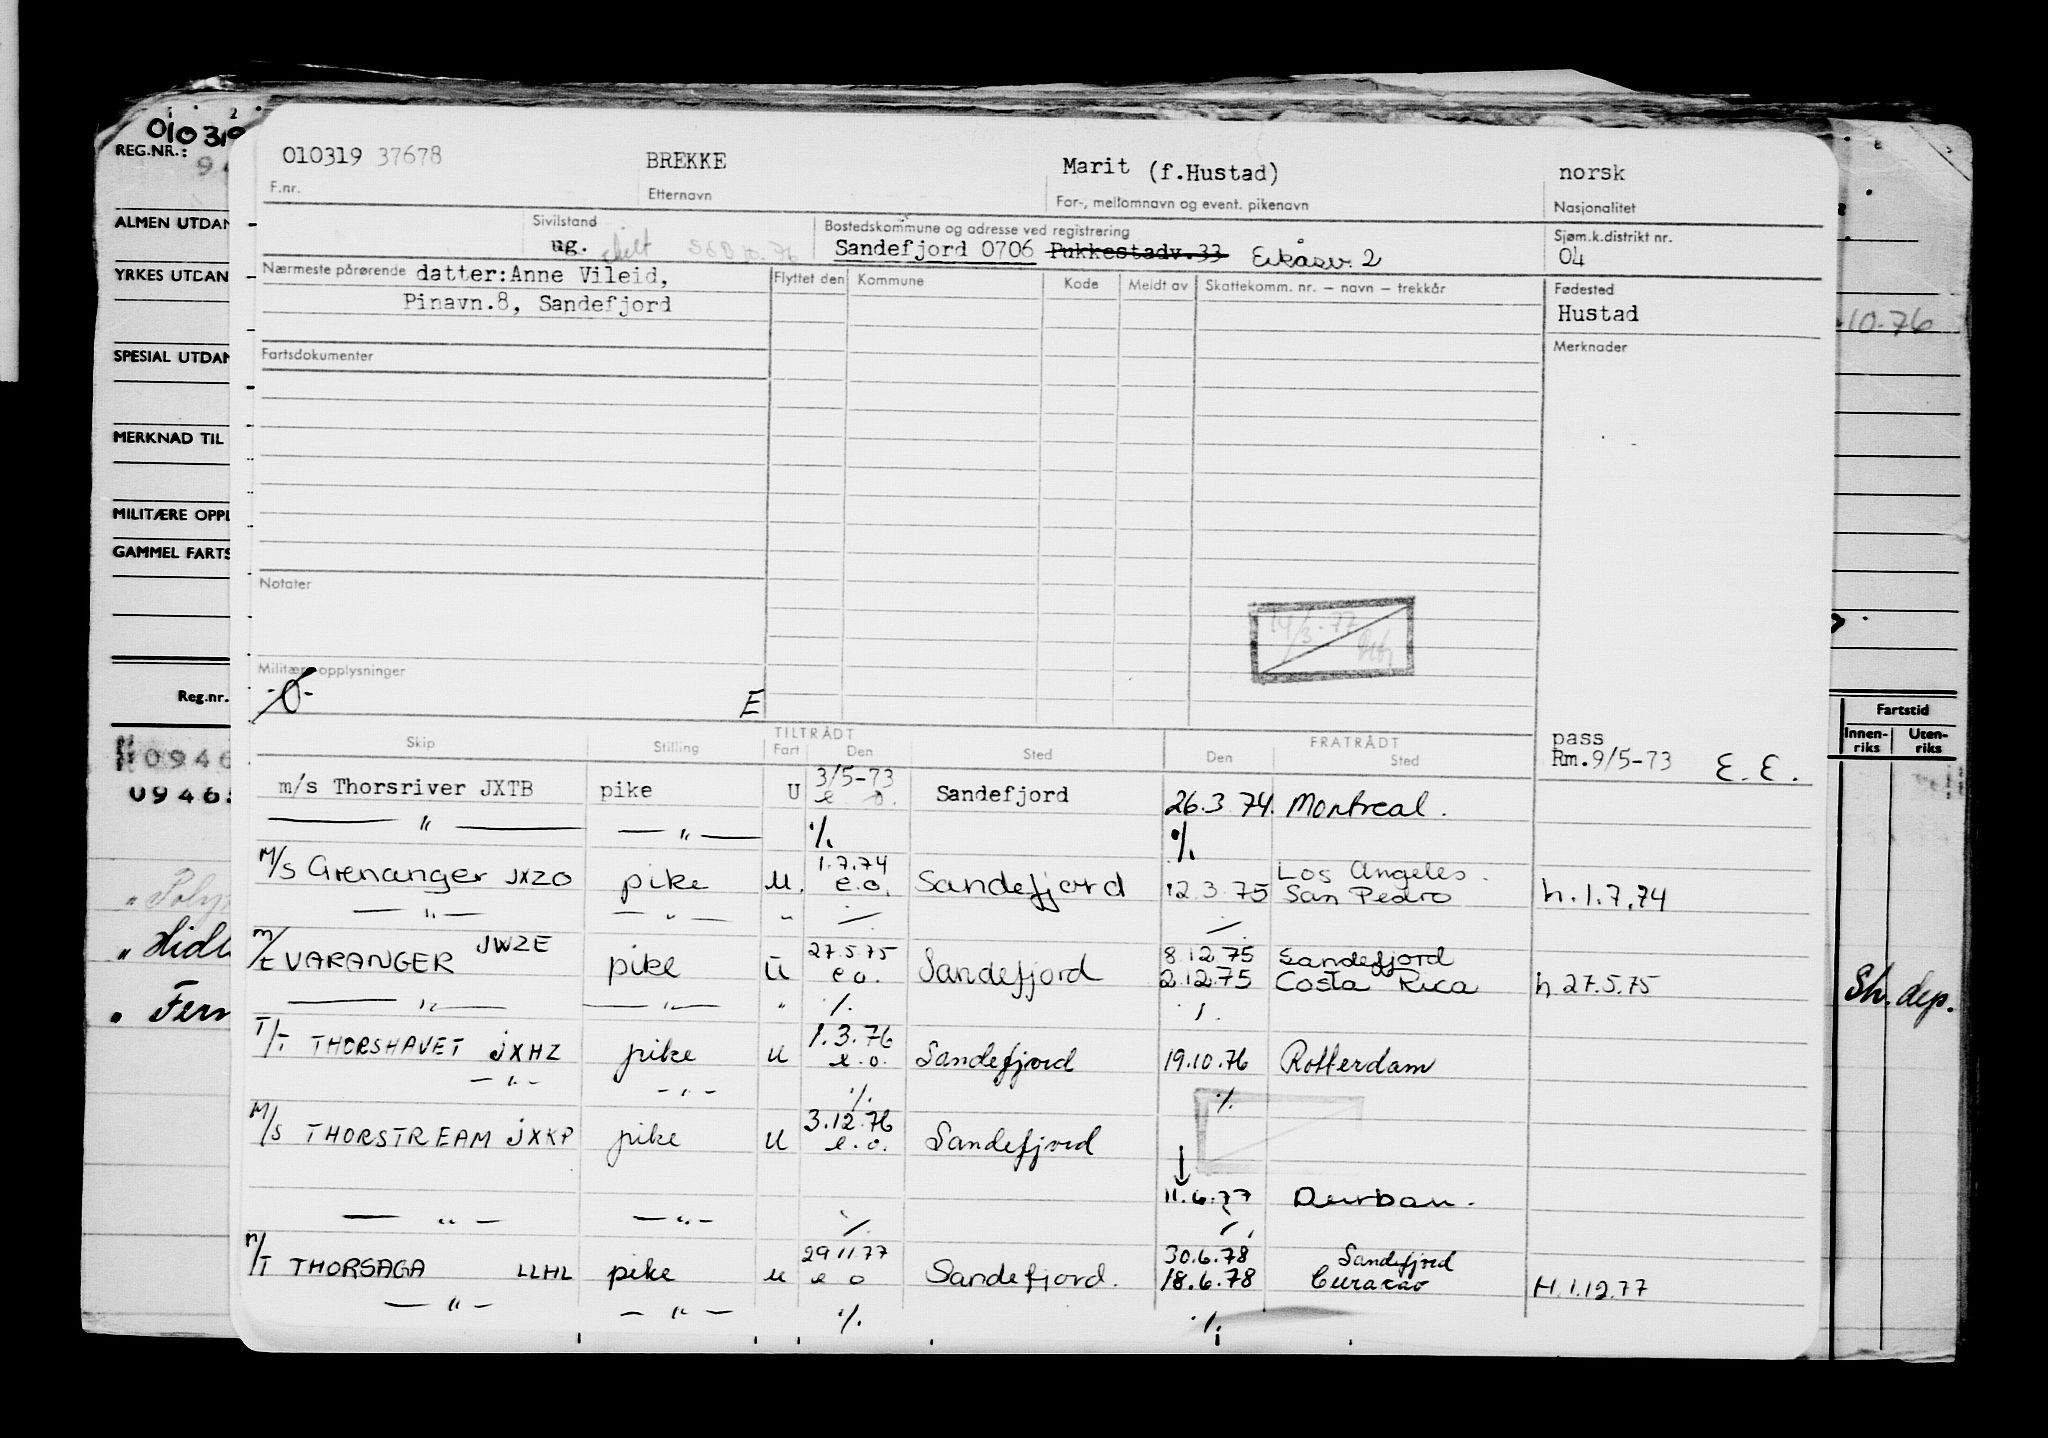 010319
REG.NR.:
ALMEN UTDAN
YRKES UTDAN
SPESIAL UTDAN
MERKNAD TIL
MILITÆRE OPPL
GAMMEL FARTS
Reg.nr.
0946
0946
" Hidl
" Fern
010319 37678 BREKKE Marit (f.Hustad) norsk
F.nr. Etternavn For-, mellomnavn og event. pikenavn Nasjonalitet
Sivilstand Bostedskommune og adresse ved registrering Sjøm.k.distrikt nr.
ug. skilt Sandefjord 0706 Pukkestadv.33 Eikåsv. 2 04
Nærmeste pårørende datter:Anne Vileid, Flyttet den Kommune Kode Meldt av Skattekomm. nr. – navn – trekkår Fødested
Pinavn.8, Sandefjord Hustad
Fartsdokumenter Merknader
Notater
14/3-77
Militære opplysninger
-0- E
TILTRÅDT FRATRÅDT pass
Skip Stilling Fart Den Sted Den Sted Rm.9/5-73 E.E.
m/s Thorsriver JXTB pike U 3/5-73 e.o. Sandefjord 26.3.74. Montreal.
— " — — " — ·/. ·/.
M/S Grenanger JXZO pike u. 1.7.74 e.o. Sandefjord 12.3.75 Los Angeles. San Pedro h.1.7.74
— " — — " — " ·/. ·/.
M/T VARANGER JWZE pike U 27.5.75 e o. Sandefjord 8.12.75 Sandefjord
2.12.75 Costa Rica h.27.5.75
— " — — " — " ·/. ·/.
T/T THORSHAVET JXHZ pike u 1.3.76 e.o. Sandefjord 19.10.76 Rotterdam
— " — — " — ·/. ·/.
M/S THORSTREAM JXKP pike u 3.12.76 e.o. Sandefjord
11.6.77 Durban.
— " — — " — ·/. ·/.
M/T THORSAGA LLHL pike u 29.11.77 e o Sandefjord. 30.6.78 Sandefjord
18.6.78 Curacao H.1.12.77
— " — — " — ·/. ·/.
10.76
Fartstid
Innen-riks Uten-riks
Sh. dep.